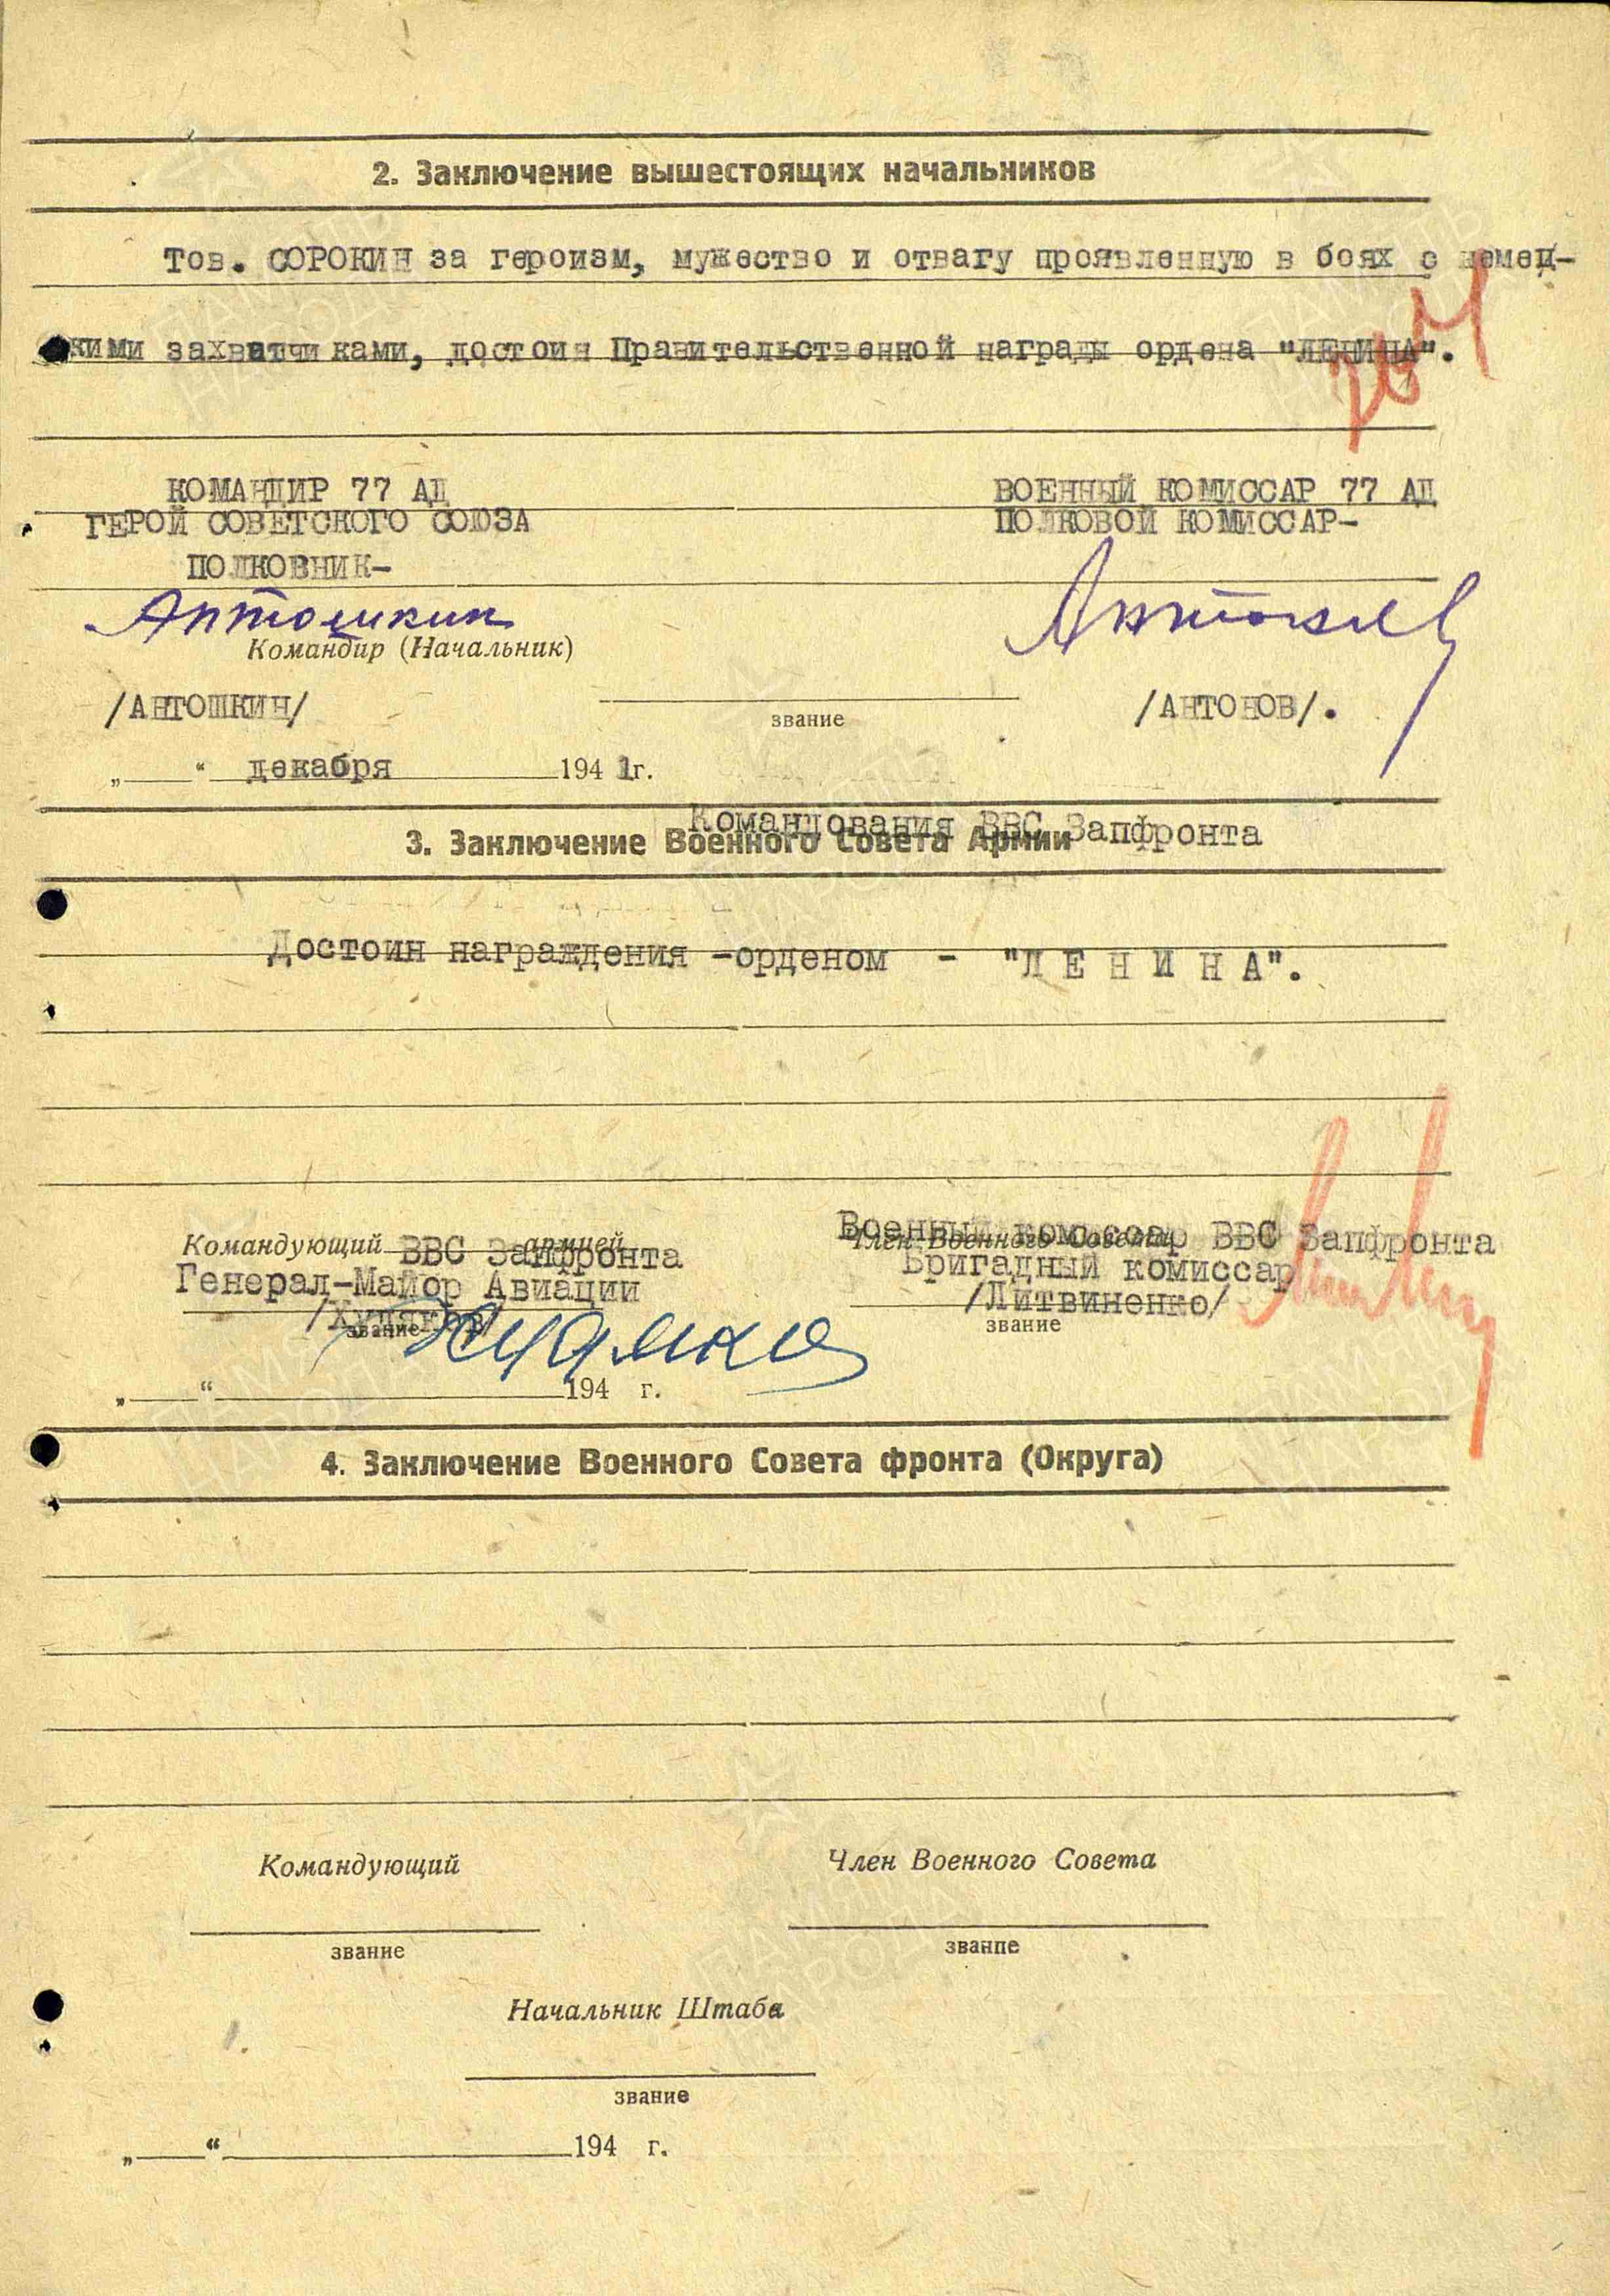 2. Заключение вышестоящих начальников
Тов. СОРОКИН за героизм, мужество и отвагу проявленную в боях с немец-
кими захватчиками, достоин Правительственной награды ордена "ЛЕНИНА".
КОМАНДИР 77 АД
ГЕРОЙ СОВЕТСКОГО СОЮЗА
ПОЛКОВНИК-
Антошкин
Командир (Начальник)
/АНТОШКИН/
звание
„ “ декабря 1941г.
ВОЕННЫЙ КОМИССАР 77 АД
ПОЛКОВОЙ КОМИССАР-
/АНТОНОВ/.
Командования ВВС Запфронта
3. Заключение Военного Совета Армии
Достоин награждения -орденом - "ЛЕНИНА".
Командующий армией
ВВС Запфронта
Генерал-Майор Авиации
/Худяков/
звание
„ “ 194 г.
Военный комиссар ВВС Запфронта
Член Военного Совета
Бригадный комиссар
/Литвиненко/
звание
4. Заключение Военного Совета фронта (Округа)
Командующий
звание
Член Военного Совета
звание
Начальник Штаба
звание
„ “ 194 г.
ПАМЯТЬ НАРОДА